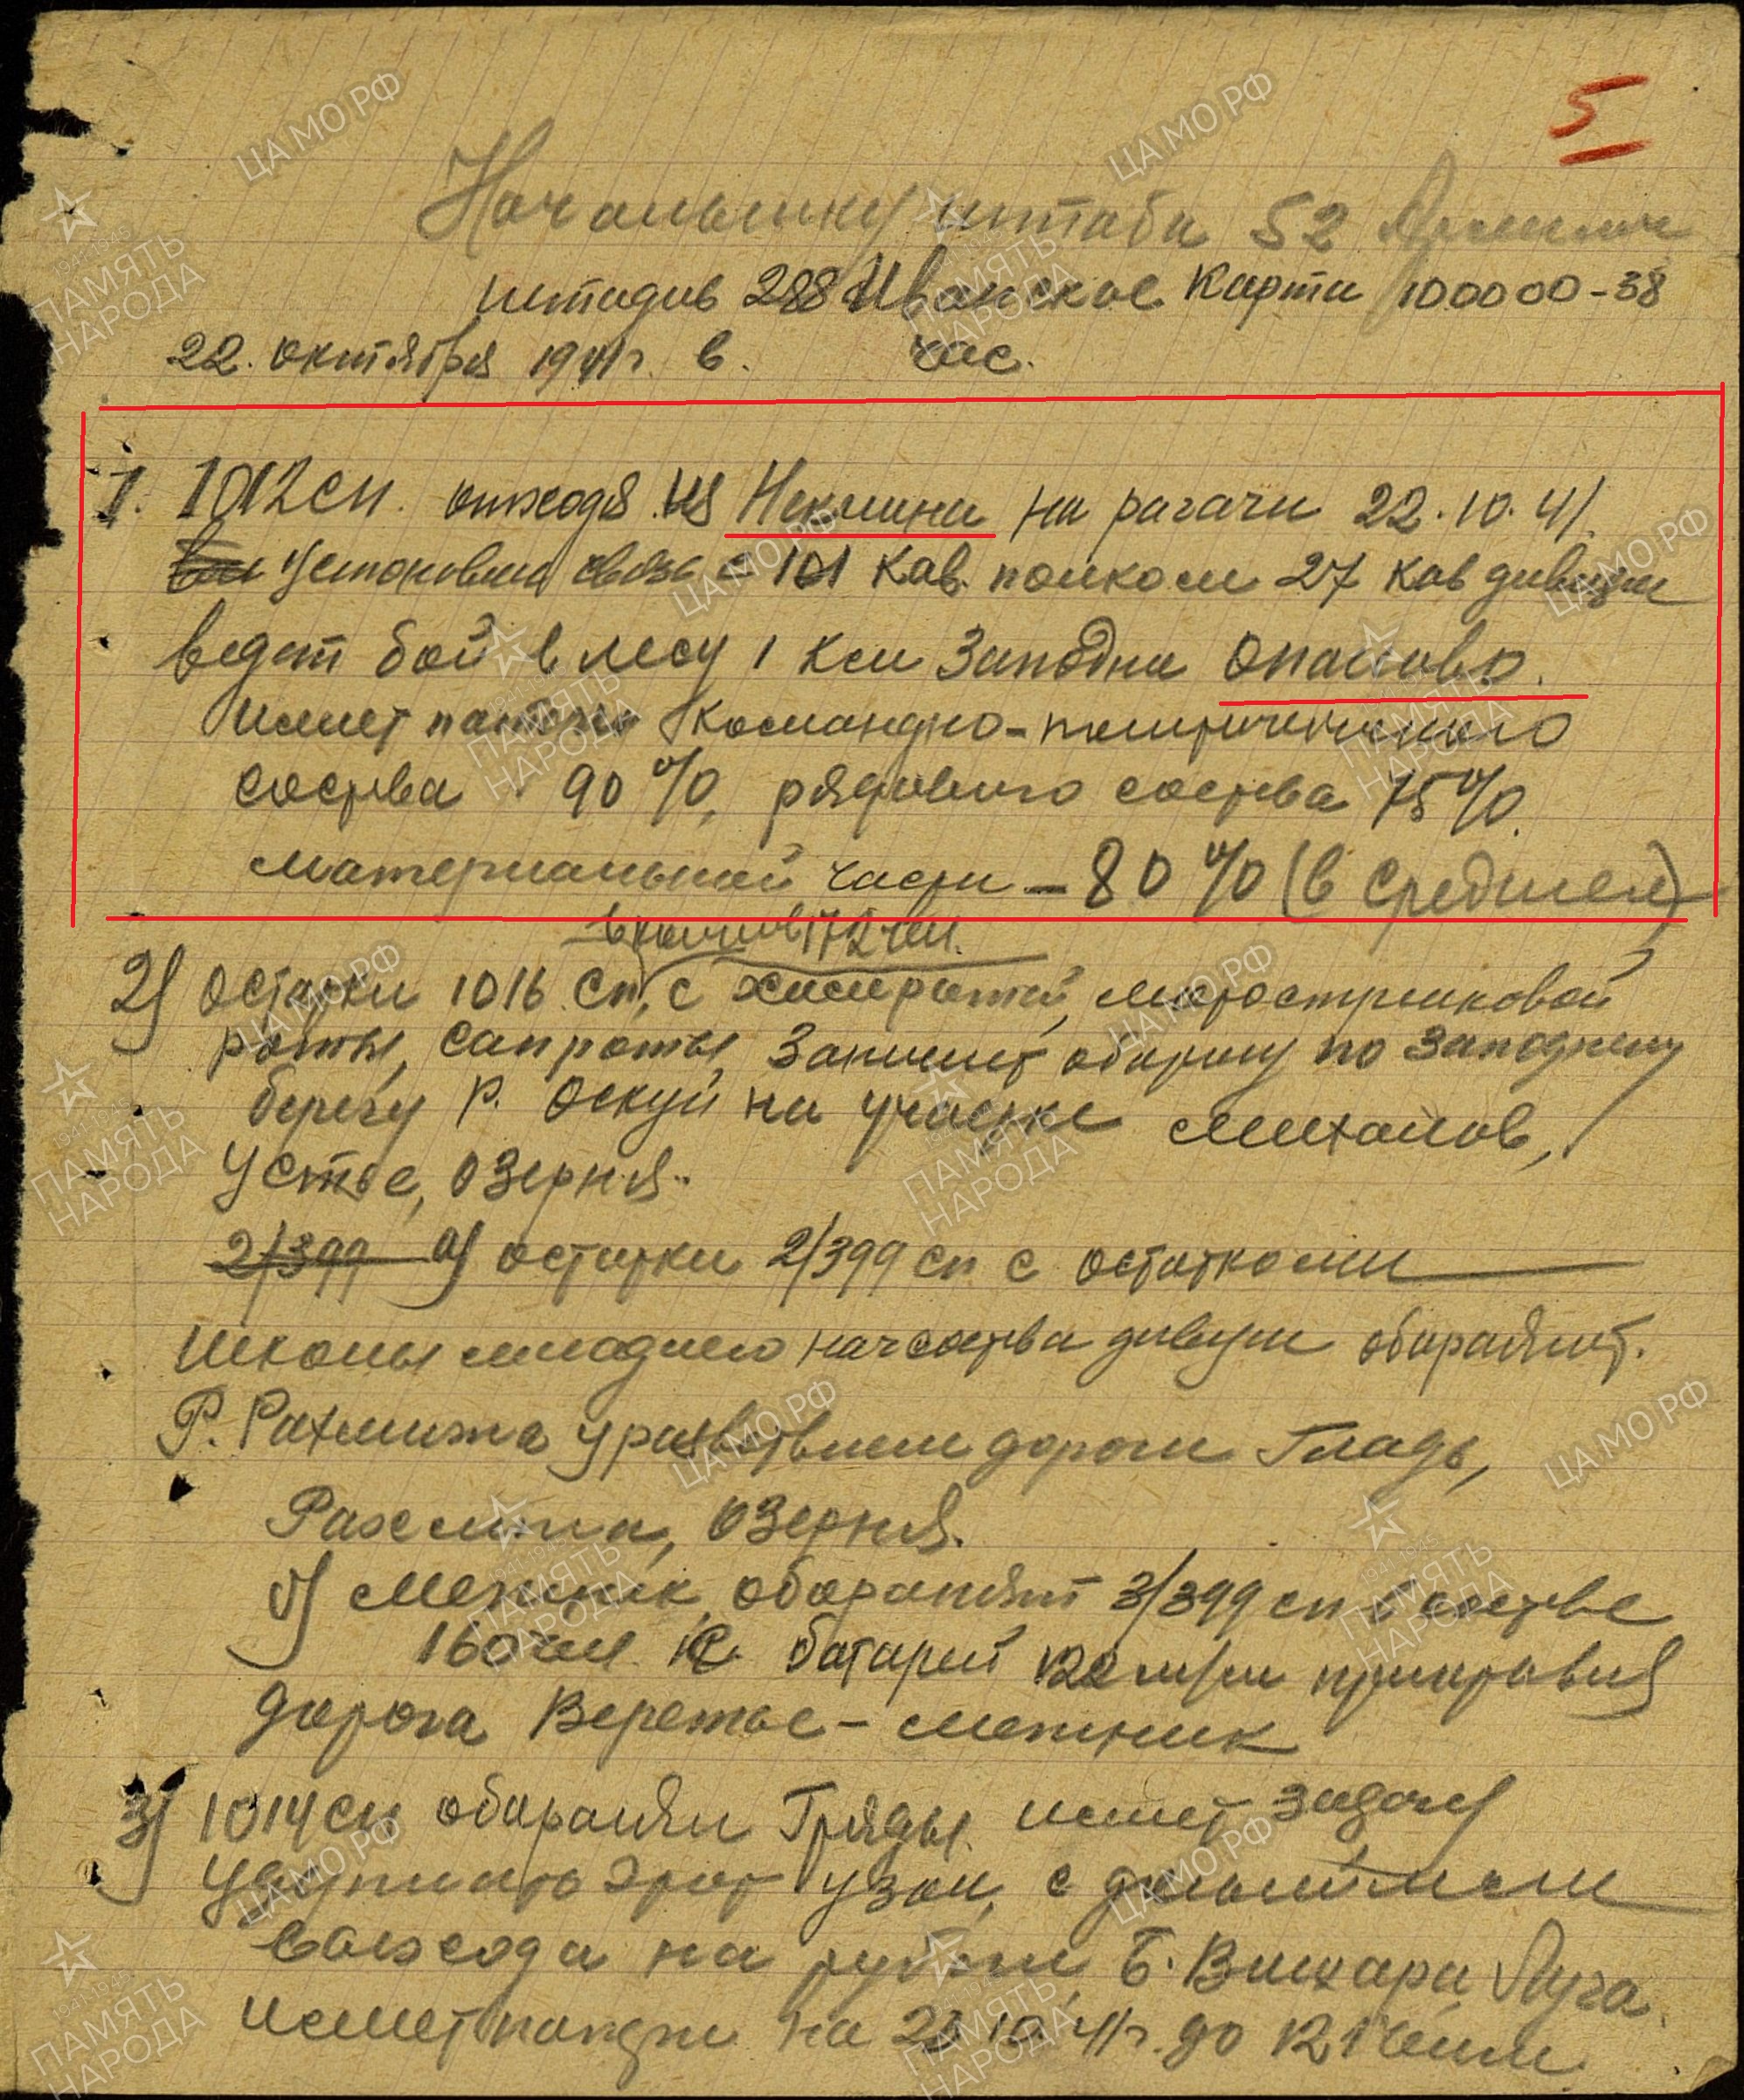 5
Начальнику штаба 52 Армии
штадив 288 Иванское Карта 100000-38
22. октября 1941г. в. час.
1. 1012 сп. отходя из Некшина на рагачи 22.10.41.
установил связь с 101 кав. полком 27 кав дивизии
ведет бой в лесу 1 км западнее Опалёво.
имеет потери командно-политического
состава 90%, рядового состава 75%.
материальной части - 80% (в среднем)
в количестве 172 чел.
2) остатки 1016 сп, с химротой,
роты, сапроты, занимает оборону по западному
берегу р. Оскуй на участке Михалёв,
Устье, Озерня.
2/399 а) остатки 2/399 сп с остатками
школы младшего начсостава дивизии обороняет.
Р. Рахмижа у разветвлен дороги Гладь,
Рахмижа, Озерня.
б) Межник обороняет 3/399 сп в составе
160 чел. с батарей 120 м/м прикрывая
дорога Веретье - межник
3) 1014 сп обороняя Гряды имеет задачу
удержать этот узел, с дальнейшем
выхода на рубеж Б. Вишера, Луга.
Имеет потери на 23 10 41г. до 12
ЦАМО РФ
ПАМЯТЬ НАРОДА
1941-1945